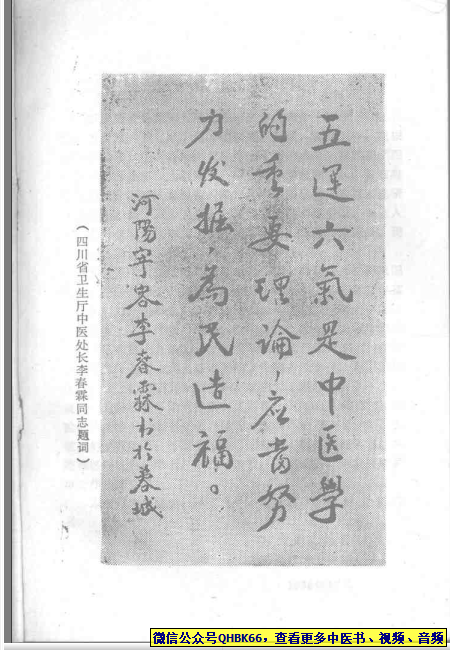 五運六氣是中医學
的重要理論，应当努
力发掘，為民造福。
河陽宇客李春霖书於蓉城
（四川省卫生厅中医处长李春霖同志题词）
微信公众号QHBK66，查看更多中医书、视频、音频